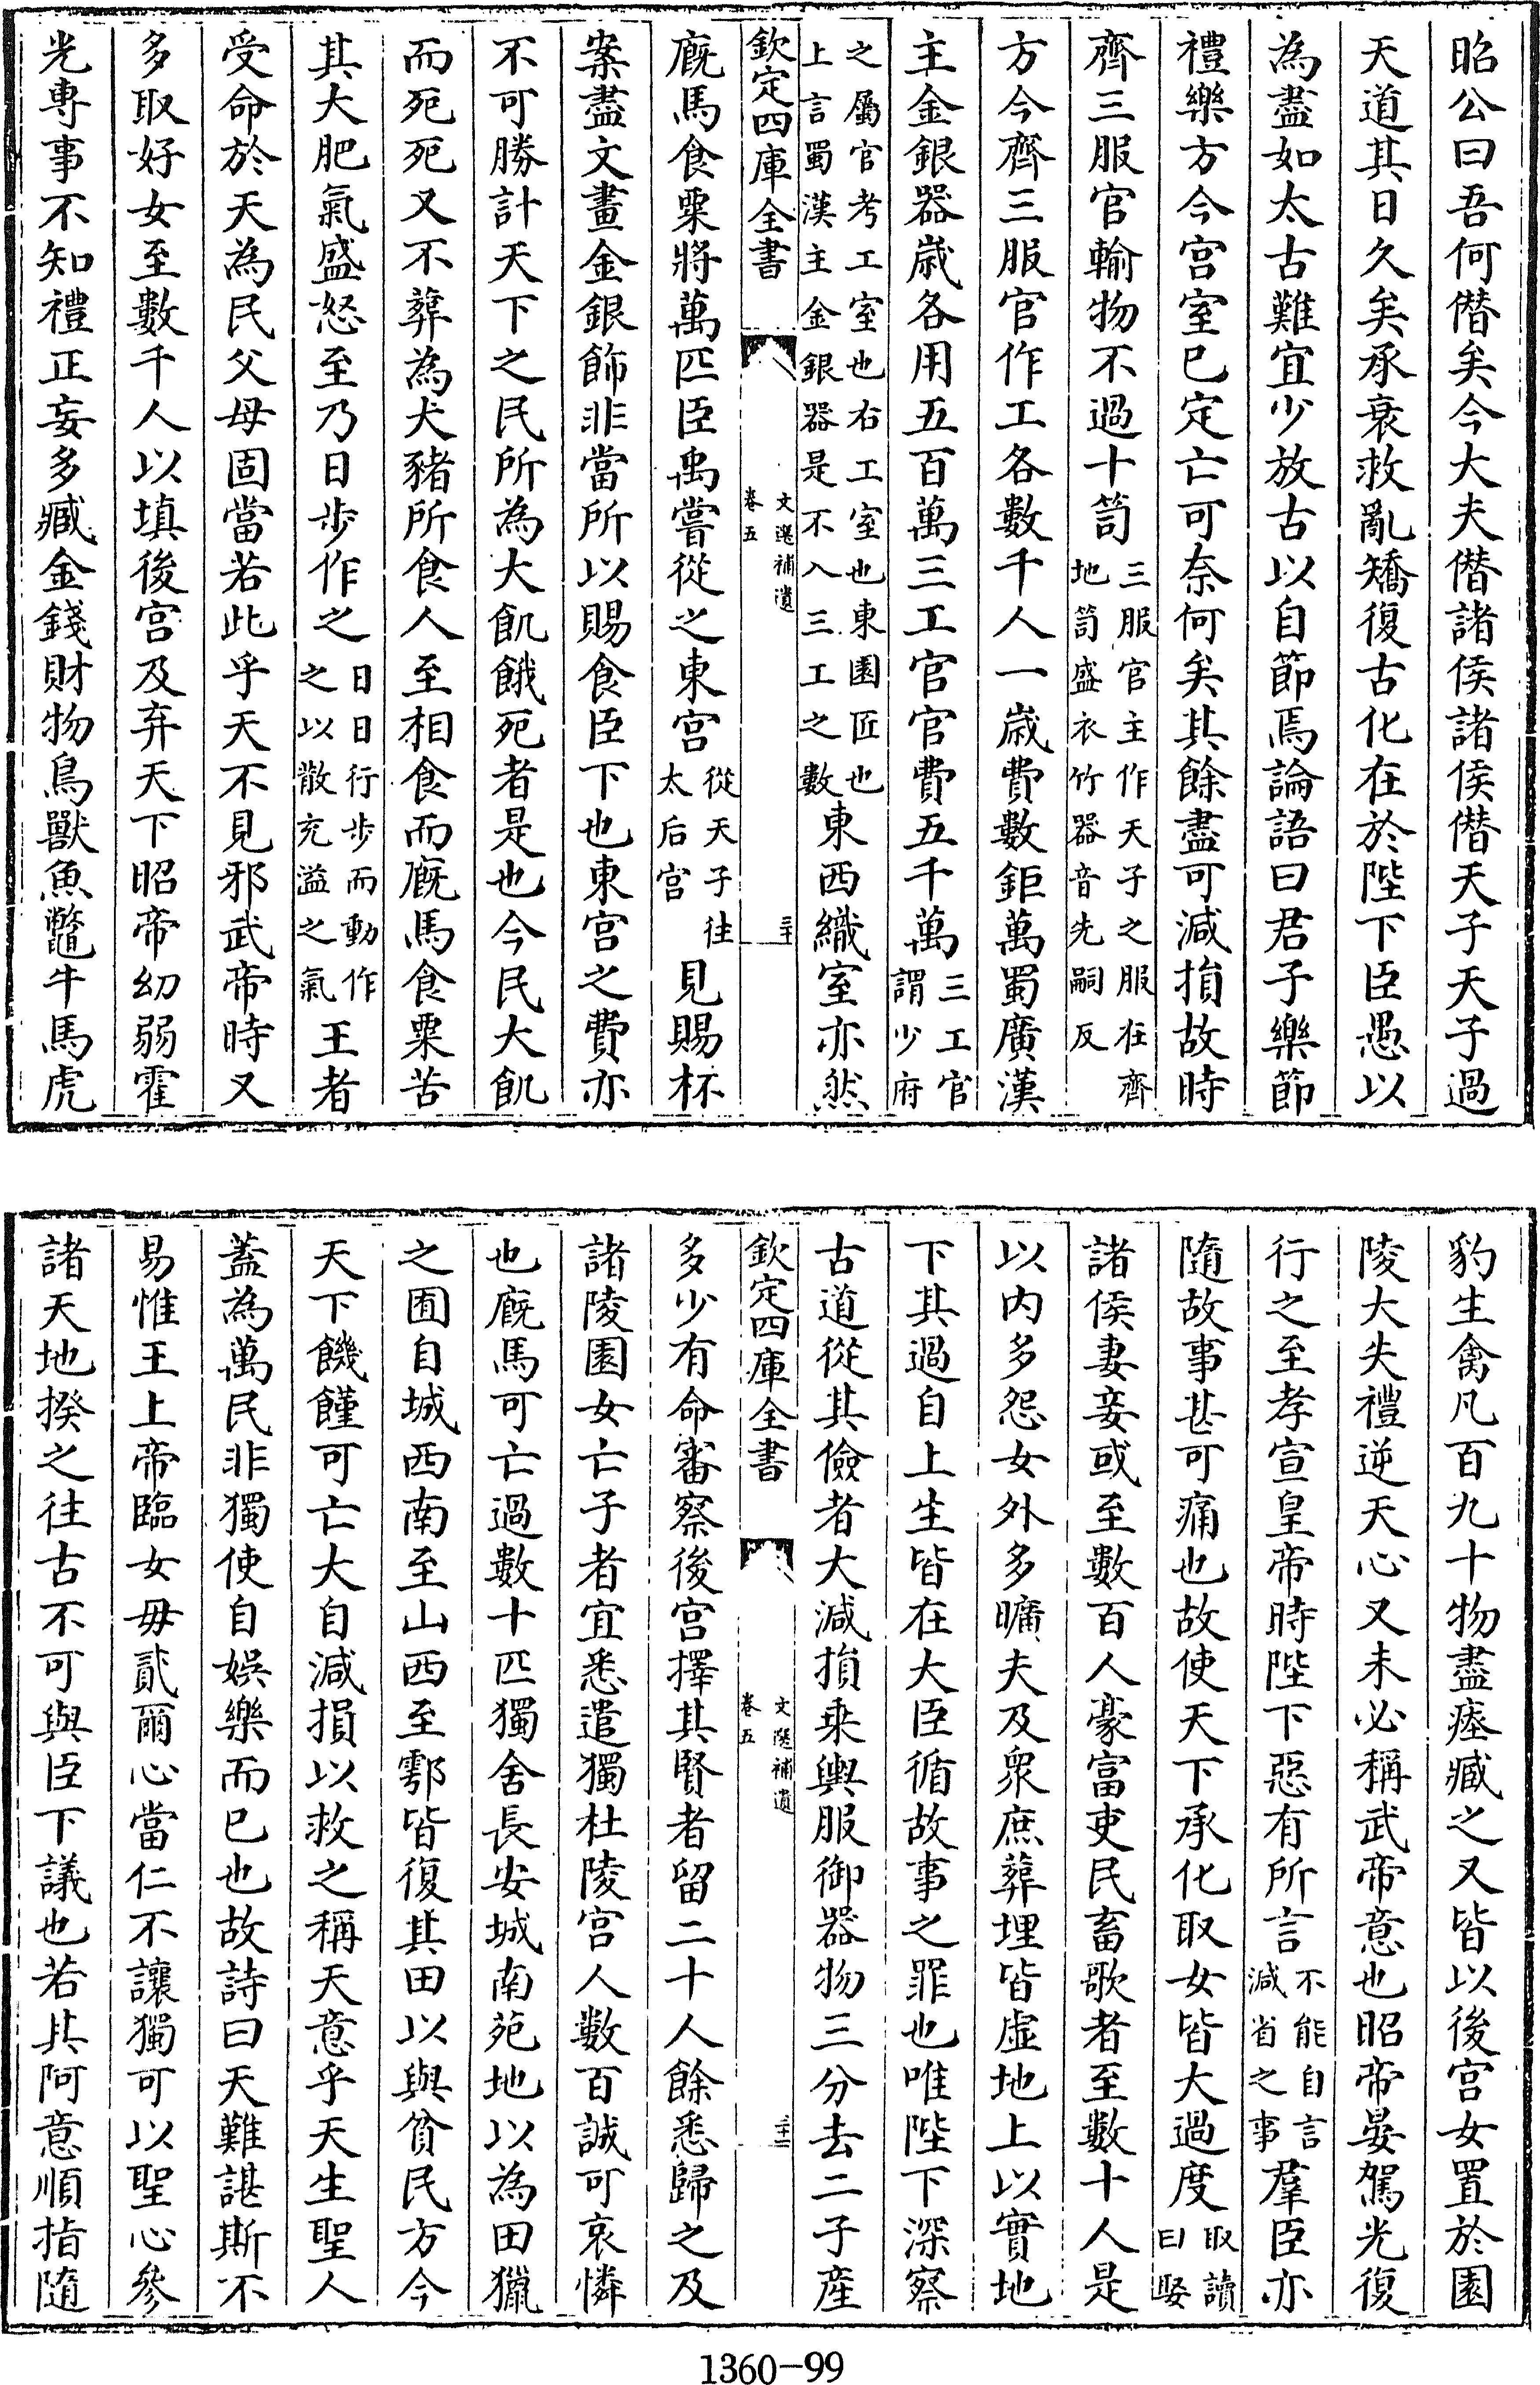 昭公曰吾何僭矣今大夫僭諸侯諸侯僭天子天子過
天道其日久矣承衰救亂矯復古化在於陛下臣愚以
為盡如太古難宜少放古以自節焉論語曰君子樂節
禮樂方今宫室已定亡可奈何矣其餘盡可減損故時
齊三服官輸物不過十笥三服官主作天子之服在齊地笥盛衣竹器音先嗣反
方今齊三服官作工各數千人一歲費數鉅萬蜀廣漢
主金銀器歲各用五百萬三工官官費五千萬三工官謂少府
之屬官考工室也右工室也東園匠也上言蜀漢主金銀器是不入三工之數東西織室亦然
欽定四庫全書 文選補遺 卷五 三十
廐馬食粟將萬匹臣禹嘗從之東宫從天子往太后宫見賜杯
案盡文畫金銀飾非當所以賜食臣下也東宫之費亦
不可勝計天下之民所為大飢餓死者是也今民大飢
而死死又不葬為犬豬所食人至相食而廐馬食粟苦
其大肥氣盛怒至乃日步作之日日行步而動作之以散充溢之氣王者
受命於天為民父母固當若此乎天不見邪武帝時又
多取好女至數千人以填後宫及弃天下昭帝幼弱霍
光專事不知禮正妄多臧金錢財物鳥獸魚鼈牛馬虎
豹生禽凡百九十物盡瘞臧之又皆以後宫女置於園
陵大失禮逆天心又未必稱武帝意也昭帝晏駕光復
行之至孝宣皇帝時陛下惡有所言不能自言減省之事羣臣亦
隨故事甚可痛也故使天下承化取女皆大過度取讀曰娶
諸侯妻妾或至數百人豪富吏民畜歌者至數十人是
以内多怨女外多曠夫及衆庶葬埋皆虚地上以實地
下其過自上生皆在大臣循故事之罪也唯陛下深察
古道從其儉者大減損乗輿服御器物三分去二子産
欽定四庫全書 文選補遺 卷五 三十一
多少有命審察後宫擇其賢者留二十人餘悉歸之及
諸陵園女亡子者宜悉遣獨杜陵宫人數百誠可哀憐
也廐馬可亡過數十匹獨舍長安城南苑地以為田獵
之囿自城西南至山西至鄠皆復其田以與貧民方今
天下饑饉可亡大自減損以救之稱天意乎天生聖人
蓋為萬民非獨使自娛樂而已也故詩曰天難諶斯不
易惟王上帝臨女毋貳爾心當仁不讓獨可以聖心參
諸天地揆之往古不可與臣下議也若其阿意順指隨
1360-99